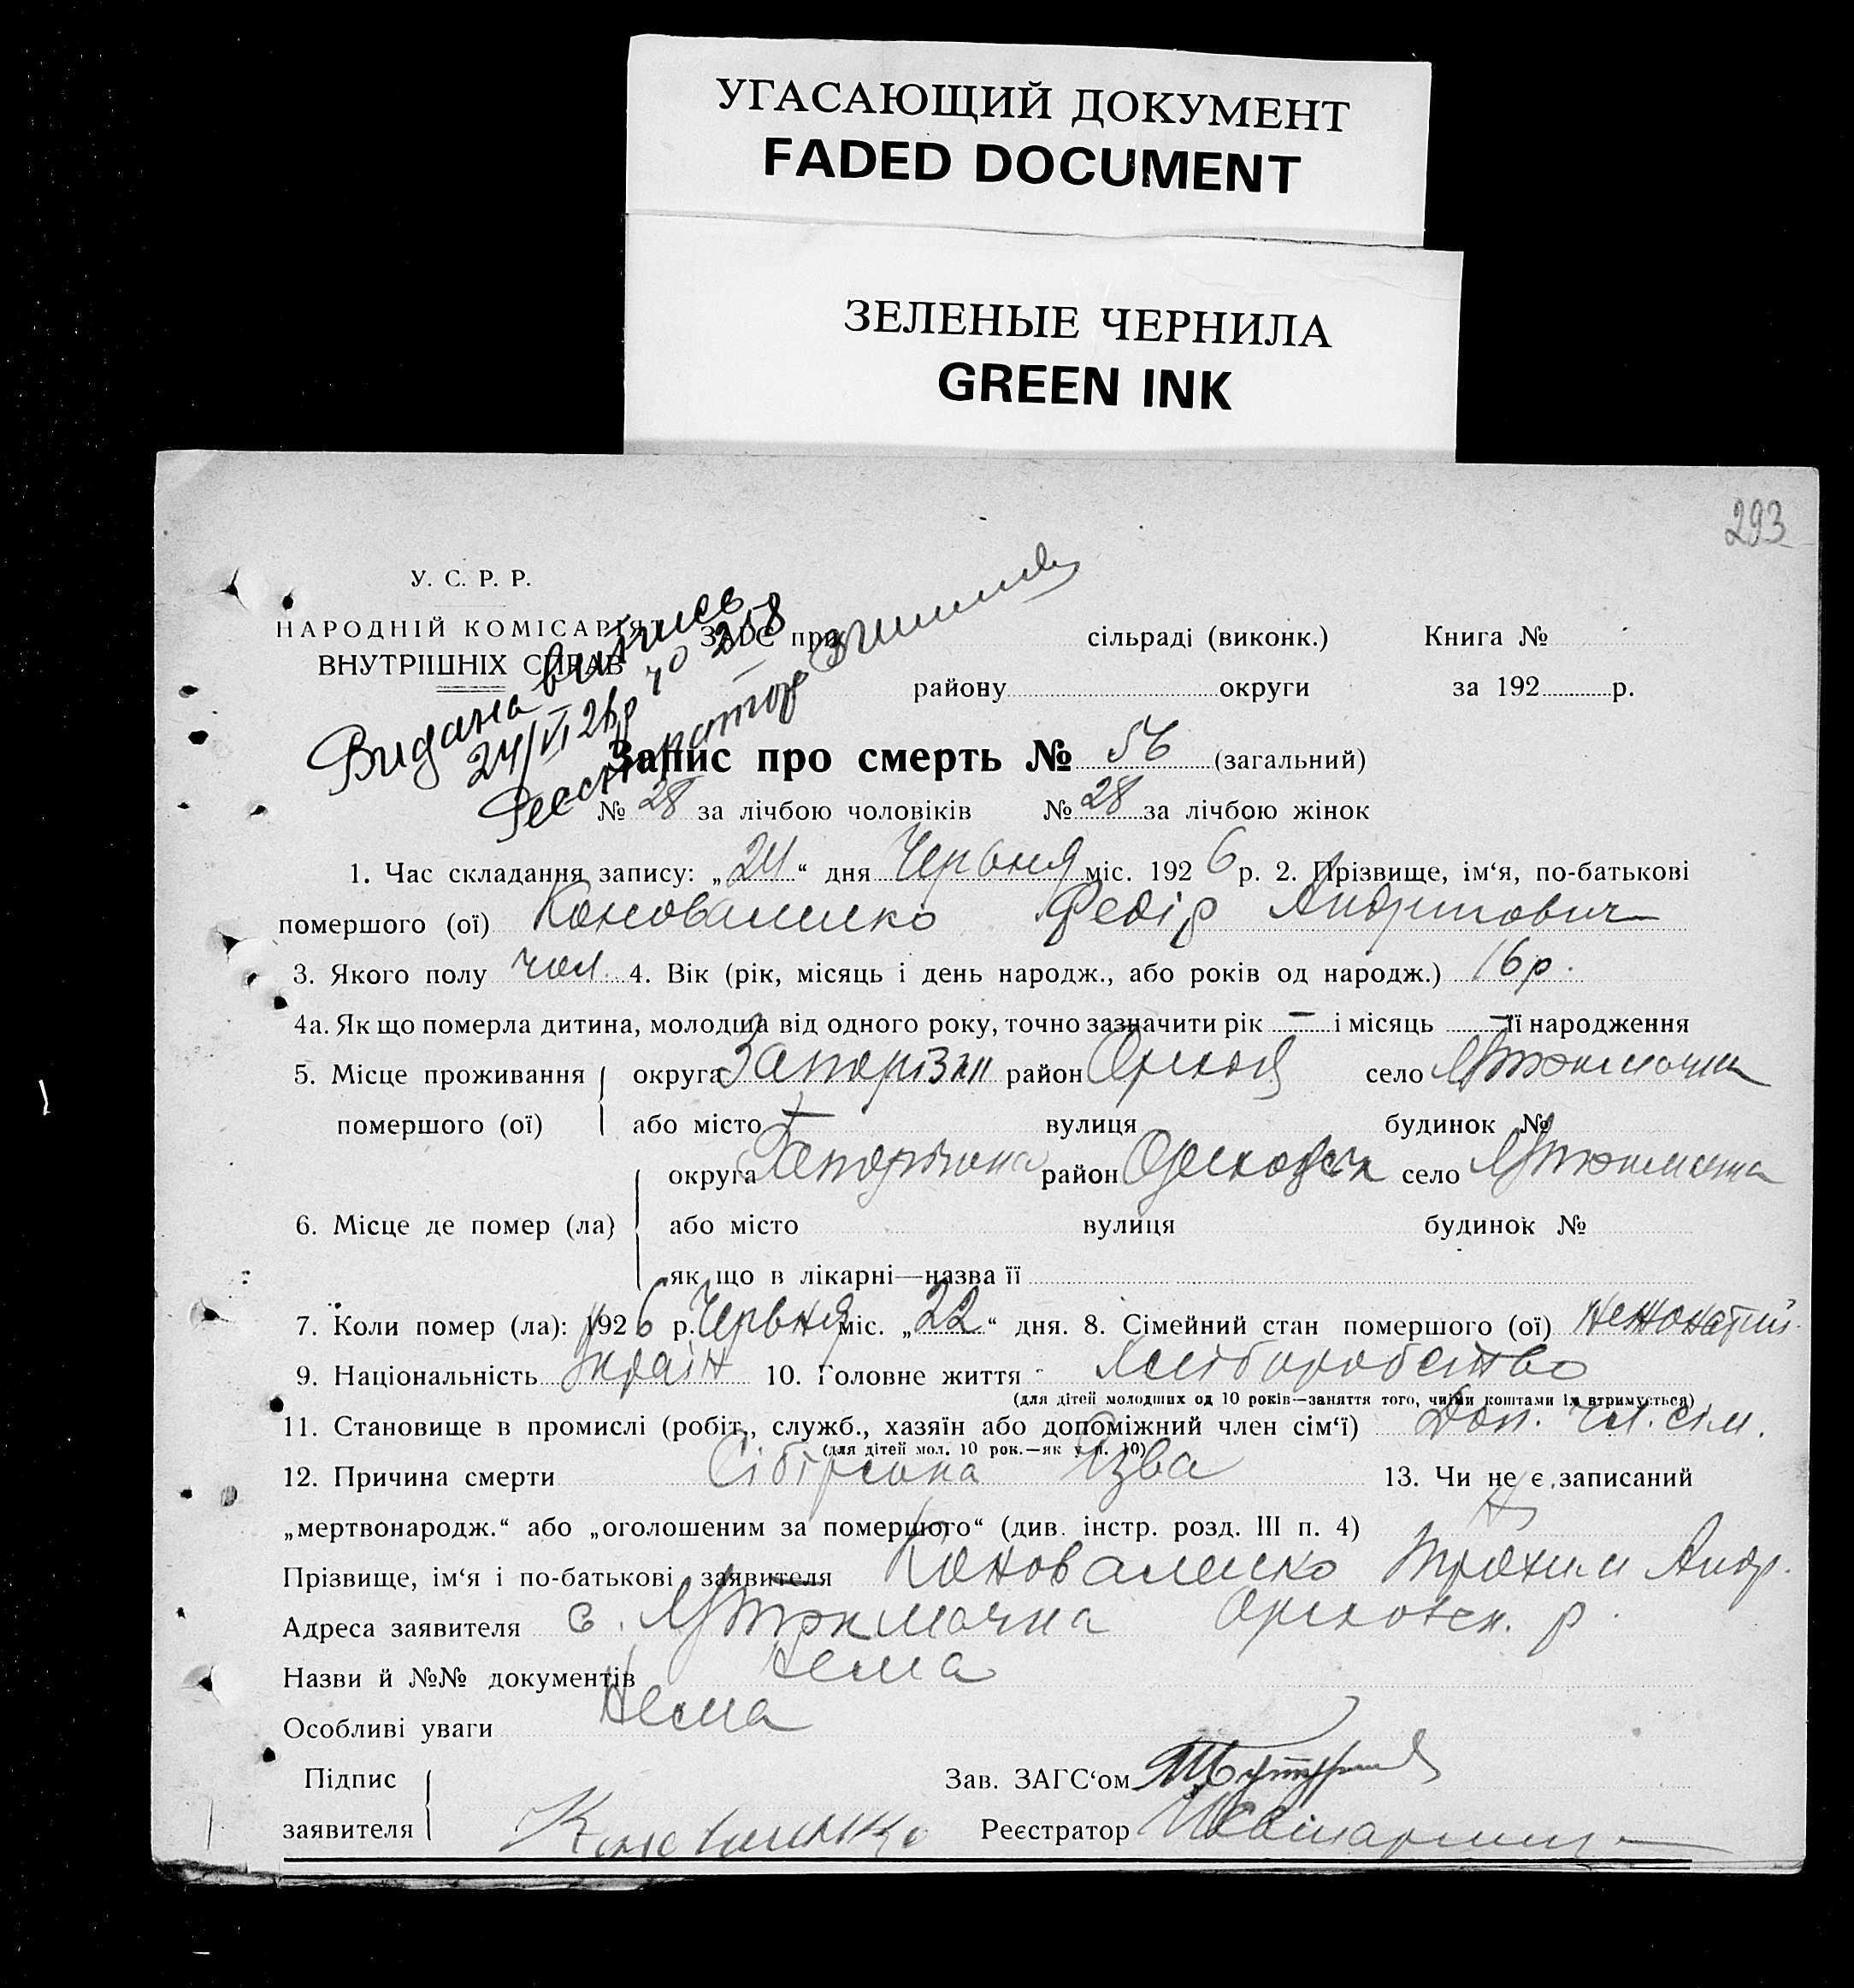 УГАСАЮЩИЙ ДОКУМЕНТ
FADED DOCUMENT
ЗЕЛЕНЫЕ ЧЕРНИЛА
GREEN INK
293
У. С. Р. Р.
НАРОДНІЙ КОМІСАРІЯТ
ВНУТРІШНІХ СПРАВ
Видана витпись
24/VI 26р
Реєстратор
ЗАГС при сільраді (виконк.) Книга №
району округи за 192 р.
Запис про смерть № 56 (загальний)
№ 28 за лічбою чоловіків № 28 за лічбою жінок
1. Час складання запису: „24“ дня Червня міс. 1926 р. 2. Прізвище, ім‘я, по-батькові
помершого (ої) Коноваленко Федір Андриович
3. Якого полу чол. 4. Вік (рік, місяць і день народж., або років од народж.) 16 р.
4а. Як що померла дитина, молодша від одного року, точно зазначити рік – і місяць – її народження
5. Місце проживання округа район село
помершого (ої) або місто — вулиця будинок №
округа район село
6. Місце де помер (ла) або місто вулиця будинок №
як що в лікарні—назва її
7. Коли помер (ла): 1926 р. Червня міс. „22“ дня. 8. Сімейний стан помершого (ої) нежонатий
9. Національність Україн 10. Головне життя Хліборобство
(для дітей молодших од 10 років—заняття того, чиїми коштами їх втримується)
11. Становище в промислі (робіт., служб., хазяїн або допоміжний член сім‘ї) Доп. чл. сім.
(для дітей мол. 10 рок.—як у п. 10)
12. Причина смерти Сібірська Язва 13. Чи не є записаний
„мертвонародж.“ або „оголошеним за помершого“ (див. інстр. розд. III п. 4) Н
Прізвище, ім‘я і по-батькові заявителя Коноваленко Трохим Андр.
Адреса заявителя с. Оріховск. р.
Назви й №№ документів Нема
Особливі уваги Нема
Підпис Зав. ЗАГС‘ом
заявителя Коноваленко Реєстратор